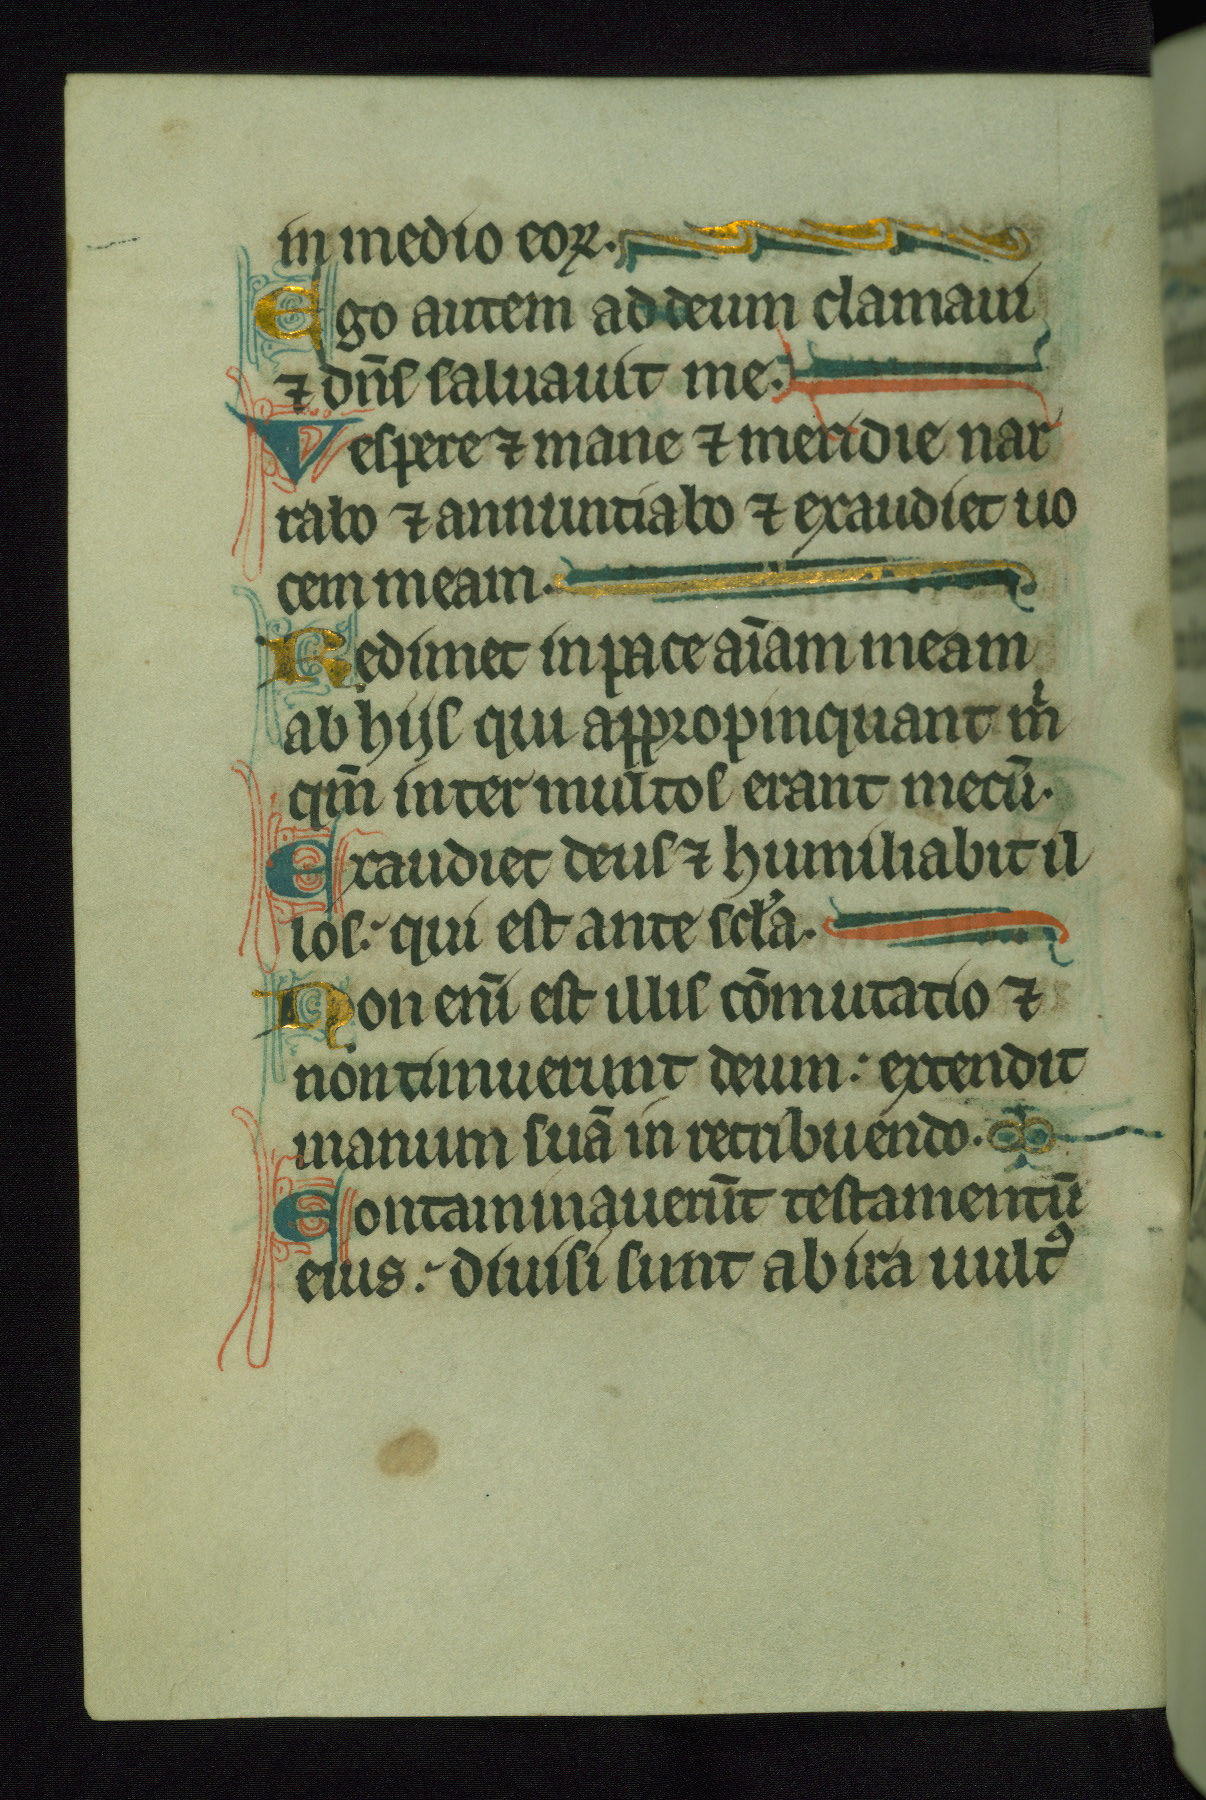 in medio eoꝝ.
Ego autem ad deum clamaui
⁊ dn̄s saluauit me:
Vespere ⁊ mane ⁊ meridie nar
rabo ⁊ annuntiabo ⁊ exaudiet uo
cem meam.
Redimet in pace aīam meam
ab hijs qui appropinquant m̄
qm̄ inter multos erant mecū.
Exaudiet deus ⁊ humiliabit il
los: qui est ante scła.
Non enī est illis cōmutatio ⁊
non timuerunt deum: extendit
manum suā in retribuendo.
Contaminauerūt testamentū
eius: diuisi sunt ab ira uultꝰ